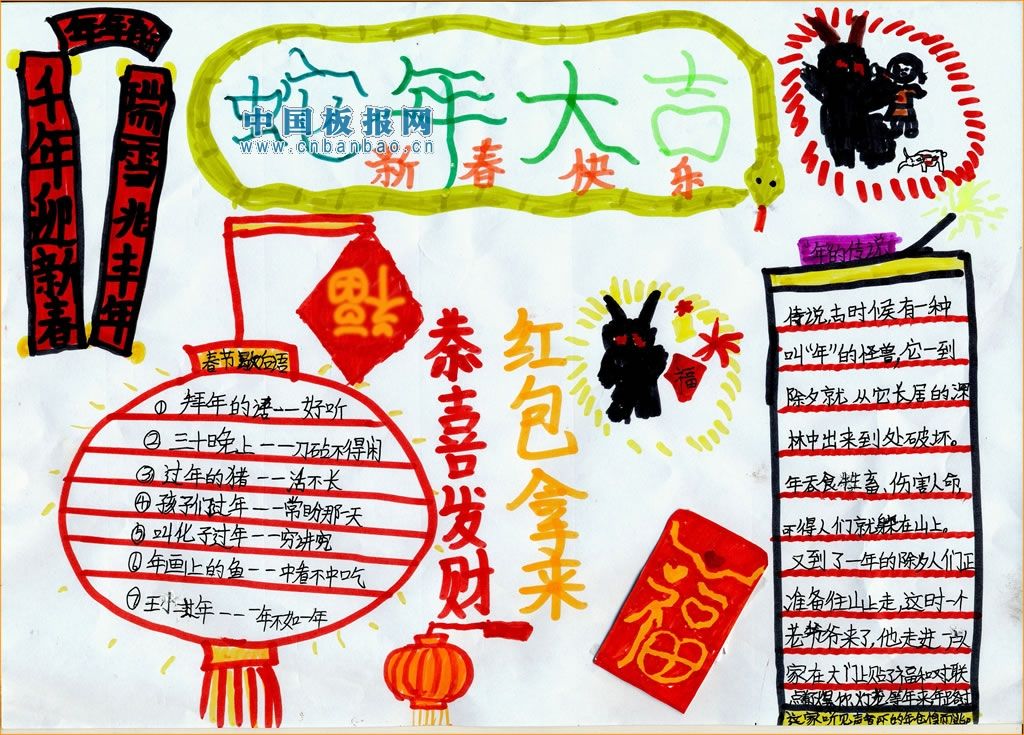 年年
千年迎新春
瑞雪兆丰年
蛇年大吉
中国板报网
www.cnbanbao.cn
新春快乐
福
春节歇后语
① 拜年的话——好听
② 三十晚上——刀砧不得闲
③ 过年的猪——活不长
④ 孩子们过年——常盼那天
⑤ 叫化子过年——穷讲究
⑥ 年画上的鱼——中看不中吃
⑦ 王小过年———年不如一年
恭喜发财
红包拿来
福
福
年的传说
传说,古时候有一种
叫“年”的怪兽,它一到
除夕就从它长居的深
林中出来到处破坏。
年吞食牲畜、伤害人命,
不得人们就躲在山上。
又到了一年的除夕人们正
准备往山上走,这时一个
老爷爷来了,他走进一户人
家在大门上贴了福和对联
点 灯 等年来年
这家听见声 的年